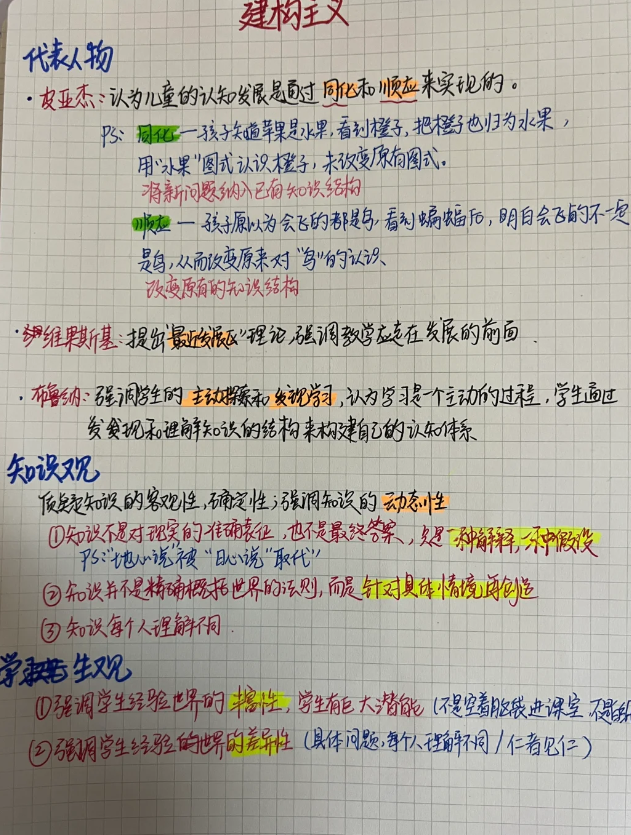 建构主义
代表人物
·皮亚杰：认为儿童的认知发展是通过同化和顺应来实现的。
PS：同化—孩子知道苹果是水果，看到橙子，把橙子也归为水果，
用“水果”图式认识橙子，未改变原有图式。
将新问题纳入已有知识结构
顺应—孩子原以为会飞的都是鸟，看到蝙蝠后，明白会飞的不一定
是鸟，从而改变原来对“鸟”的认识、
改变原有的知识结构
·维果斯基：提出“最近发展区”理论，强调教学应走在发展的前面．
·布鲁纳：强调学生的主动探索和发现学习，认为学习是一个主动的过程，学生通过
发现和理解知识的结构来构建自己的认知体系
知识观
质疑知识的客观性，确定性；强调知识的动态性
①知识不是对现实的准确表征，也不是最终答案，只是一种解释，一种假设
PS：“地心说”被“日心说”取代”
②知识并不是精确概括世界的法则，而是针对具体情境再创造
③知识每个人理解不同
学生观
①强调学生经验世界的丰富性，学生有巨大潜能（不是空着脑袋进课室 不是
②强调学生经验的世界的差异性（具体问题，每个人理解不同/仁者见仁）